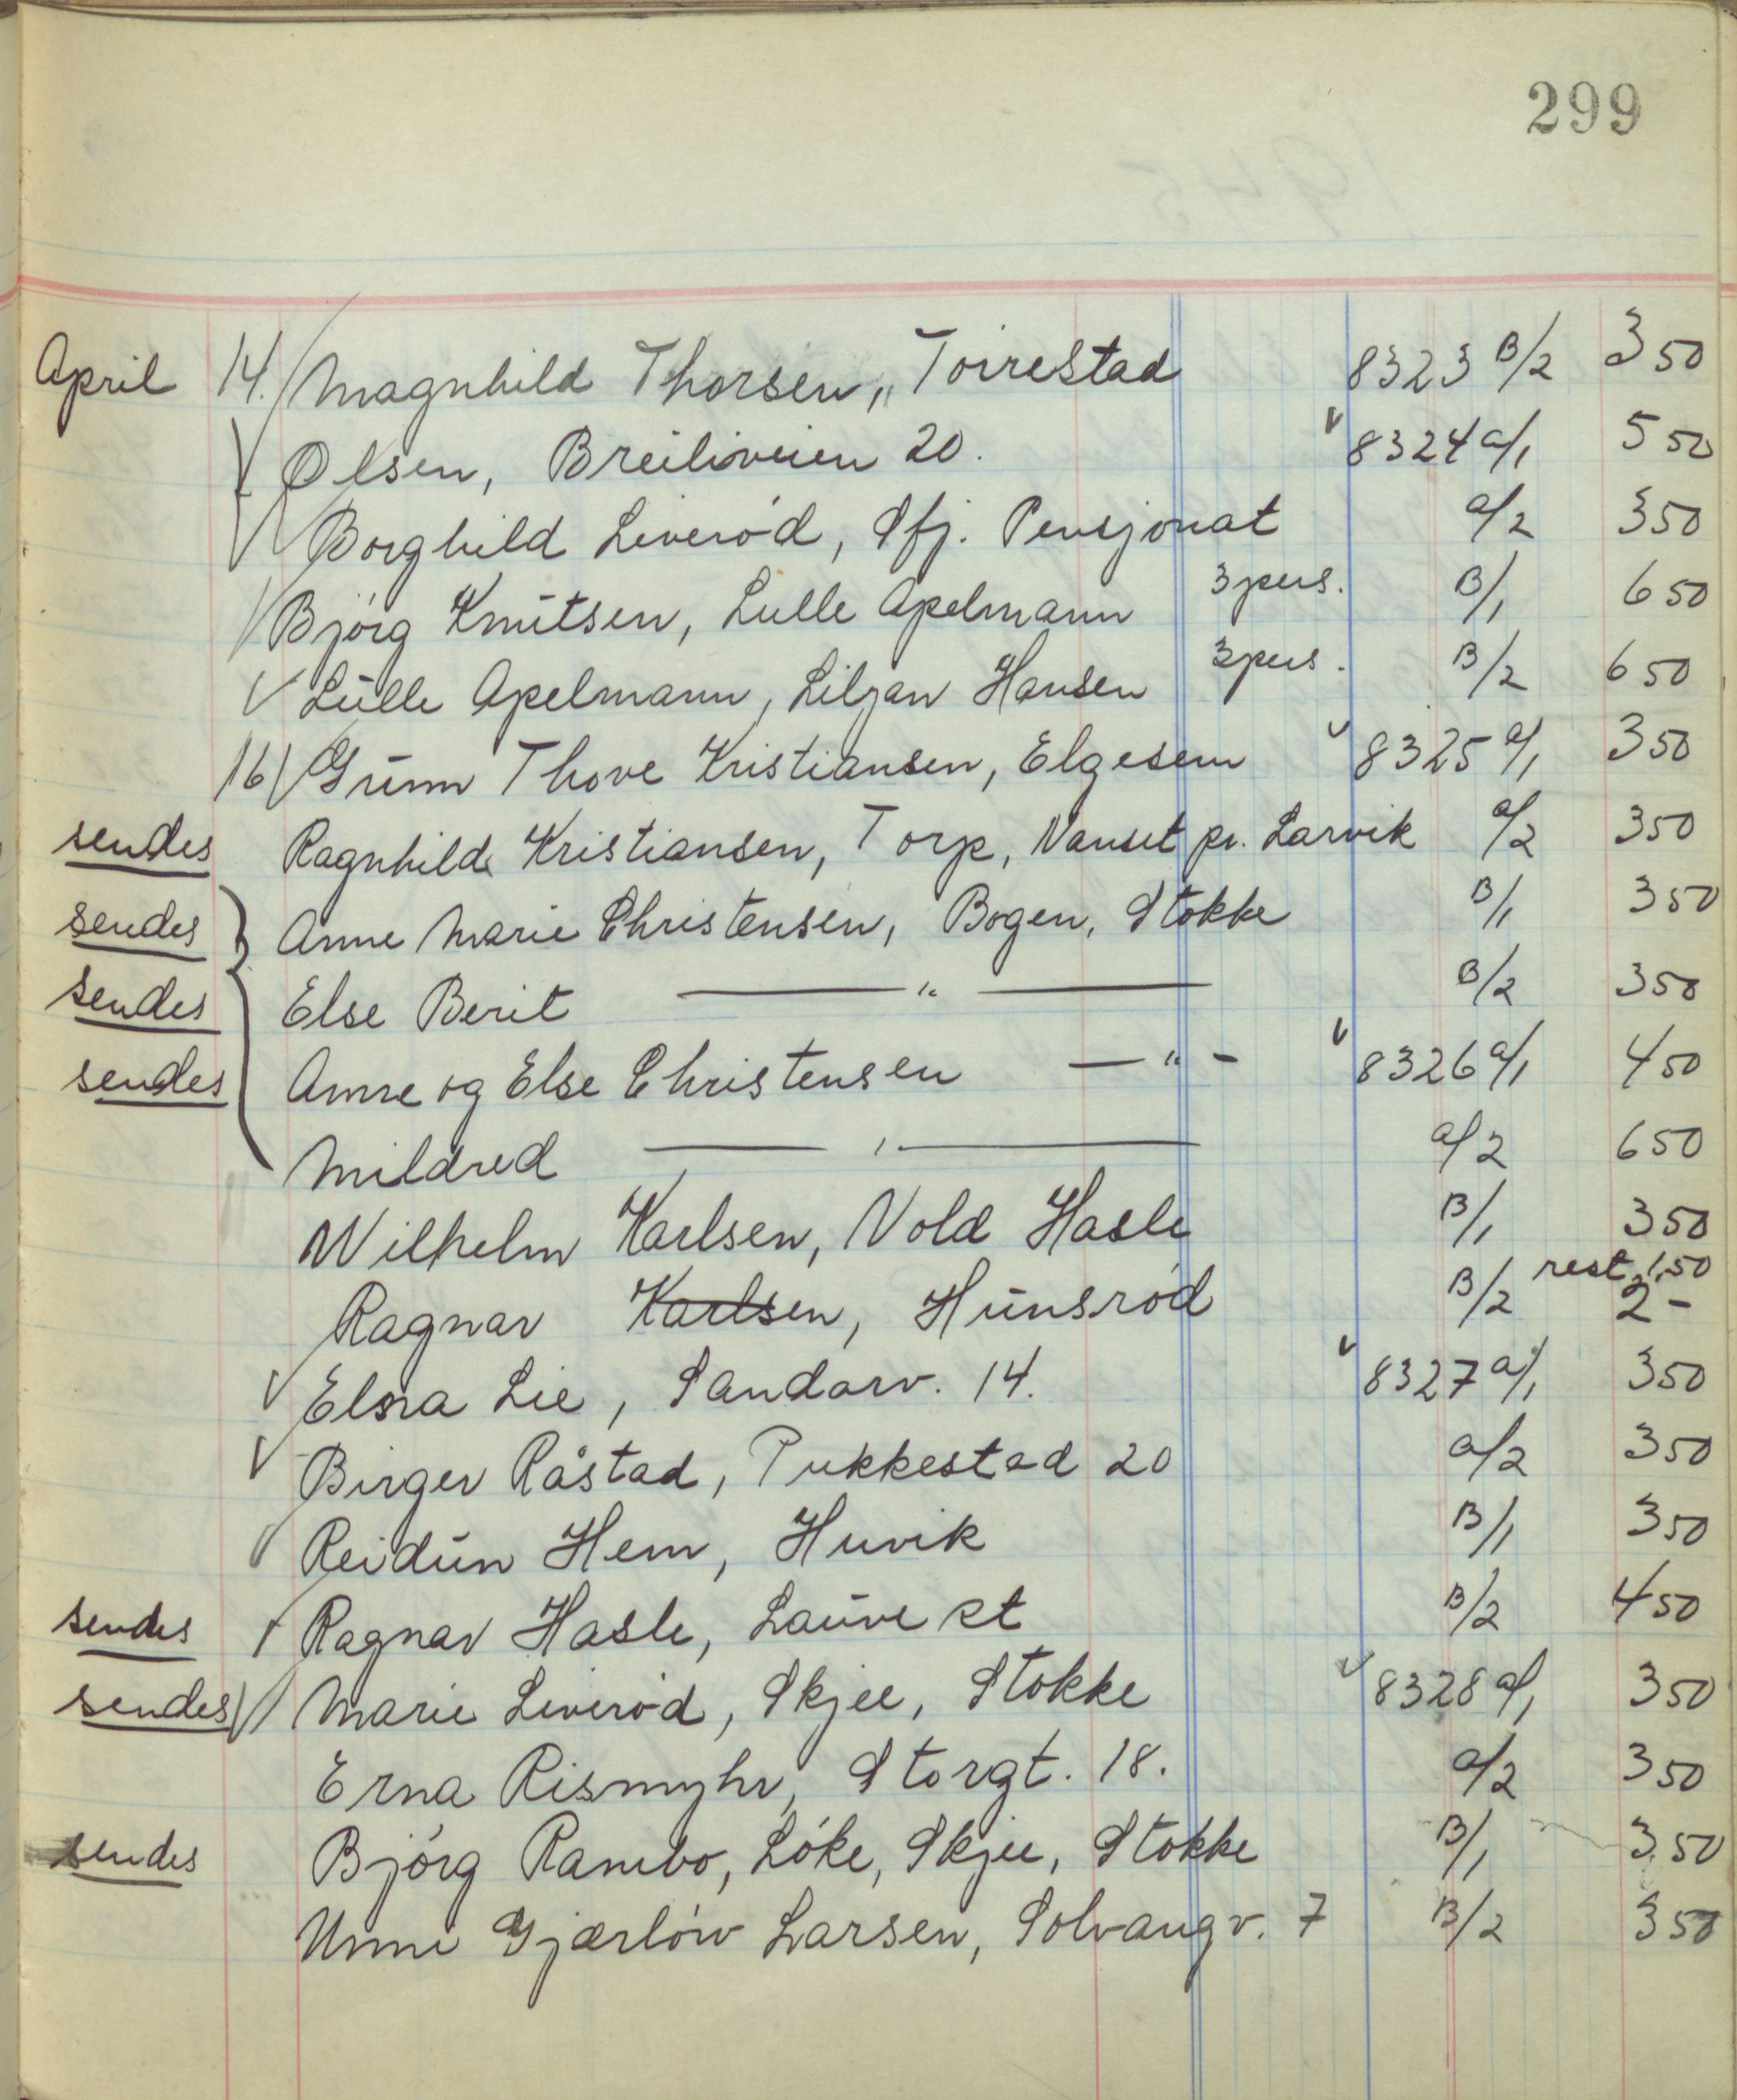 299
April 14. Magnhild Thorsen, „ Toirestad 8323 B/2 3 50
Olsen, Breiliveien 20. 8324 a/1 5 50
Borghild Liverød, Sfj. Pensjonat a/2 3 50
Bjørg Knutsen, Lulle Apelmann 3 pers. B/1 6 50
Lulle Apelmann, Liljan Hansen 3 pers. B/2 6 50
16 Gunn Thove Kristiansen, Elgesem 8325 a/1 3 50
sendes Ragnhild Kristiansen, Torp, Nanset pr. Larvik a/2 3 50
sendes Anne Marie Christensen, Bogen, Stokke B/1 3 50
sendes Else Berit — " — B/2 3 50
sendes Anne og Else Christensen — " — 8326 a/1 4 50
Mildred — " — a/2 6 50
Wilhelm Karlsen, Vold Hasle B/1 3 50
Ragnar Karlsen, Hunsrød B/2 rest 1,50 2 -
Elna Lie, Sandarv. 14. 8327 a/1 3 50
Birger Råstad, Pukkestad 20 a/2 3 50
Reidun Hem, Huvik B/1 3 50
sendes Ragnar Hasle, Lauve st B/2 4 50
sendes Marie Liverød, Skjee, Stokke 8328 a/1 3 50
Erna Rismyhr, Storgt. 18. a/2 3 50
sendes Bjørg Rambo, Løke, Skjee, Stokke B/1 3 50
Unni Gjærløw Larsen, Solvangv. 7 B/2 3 50